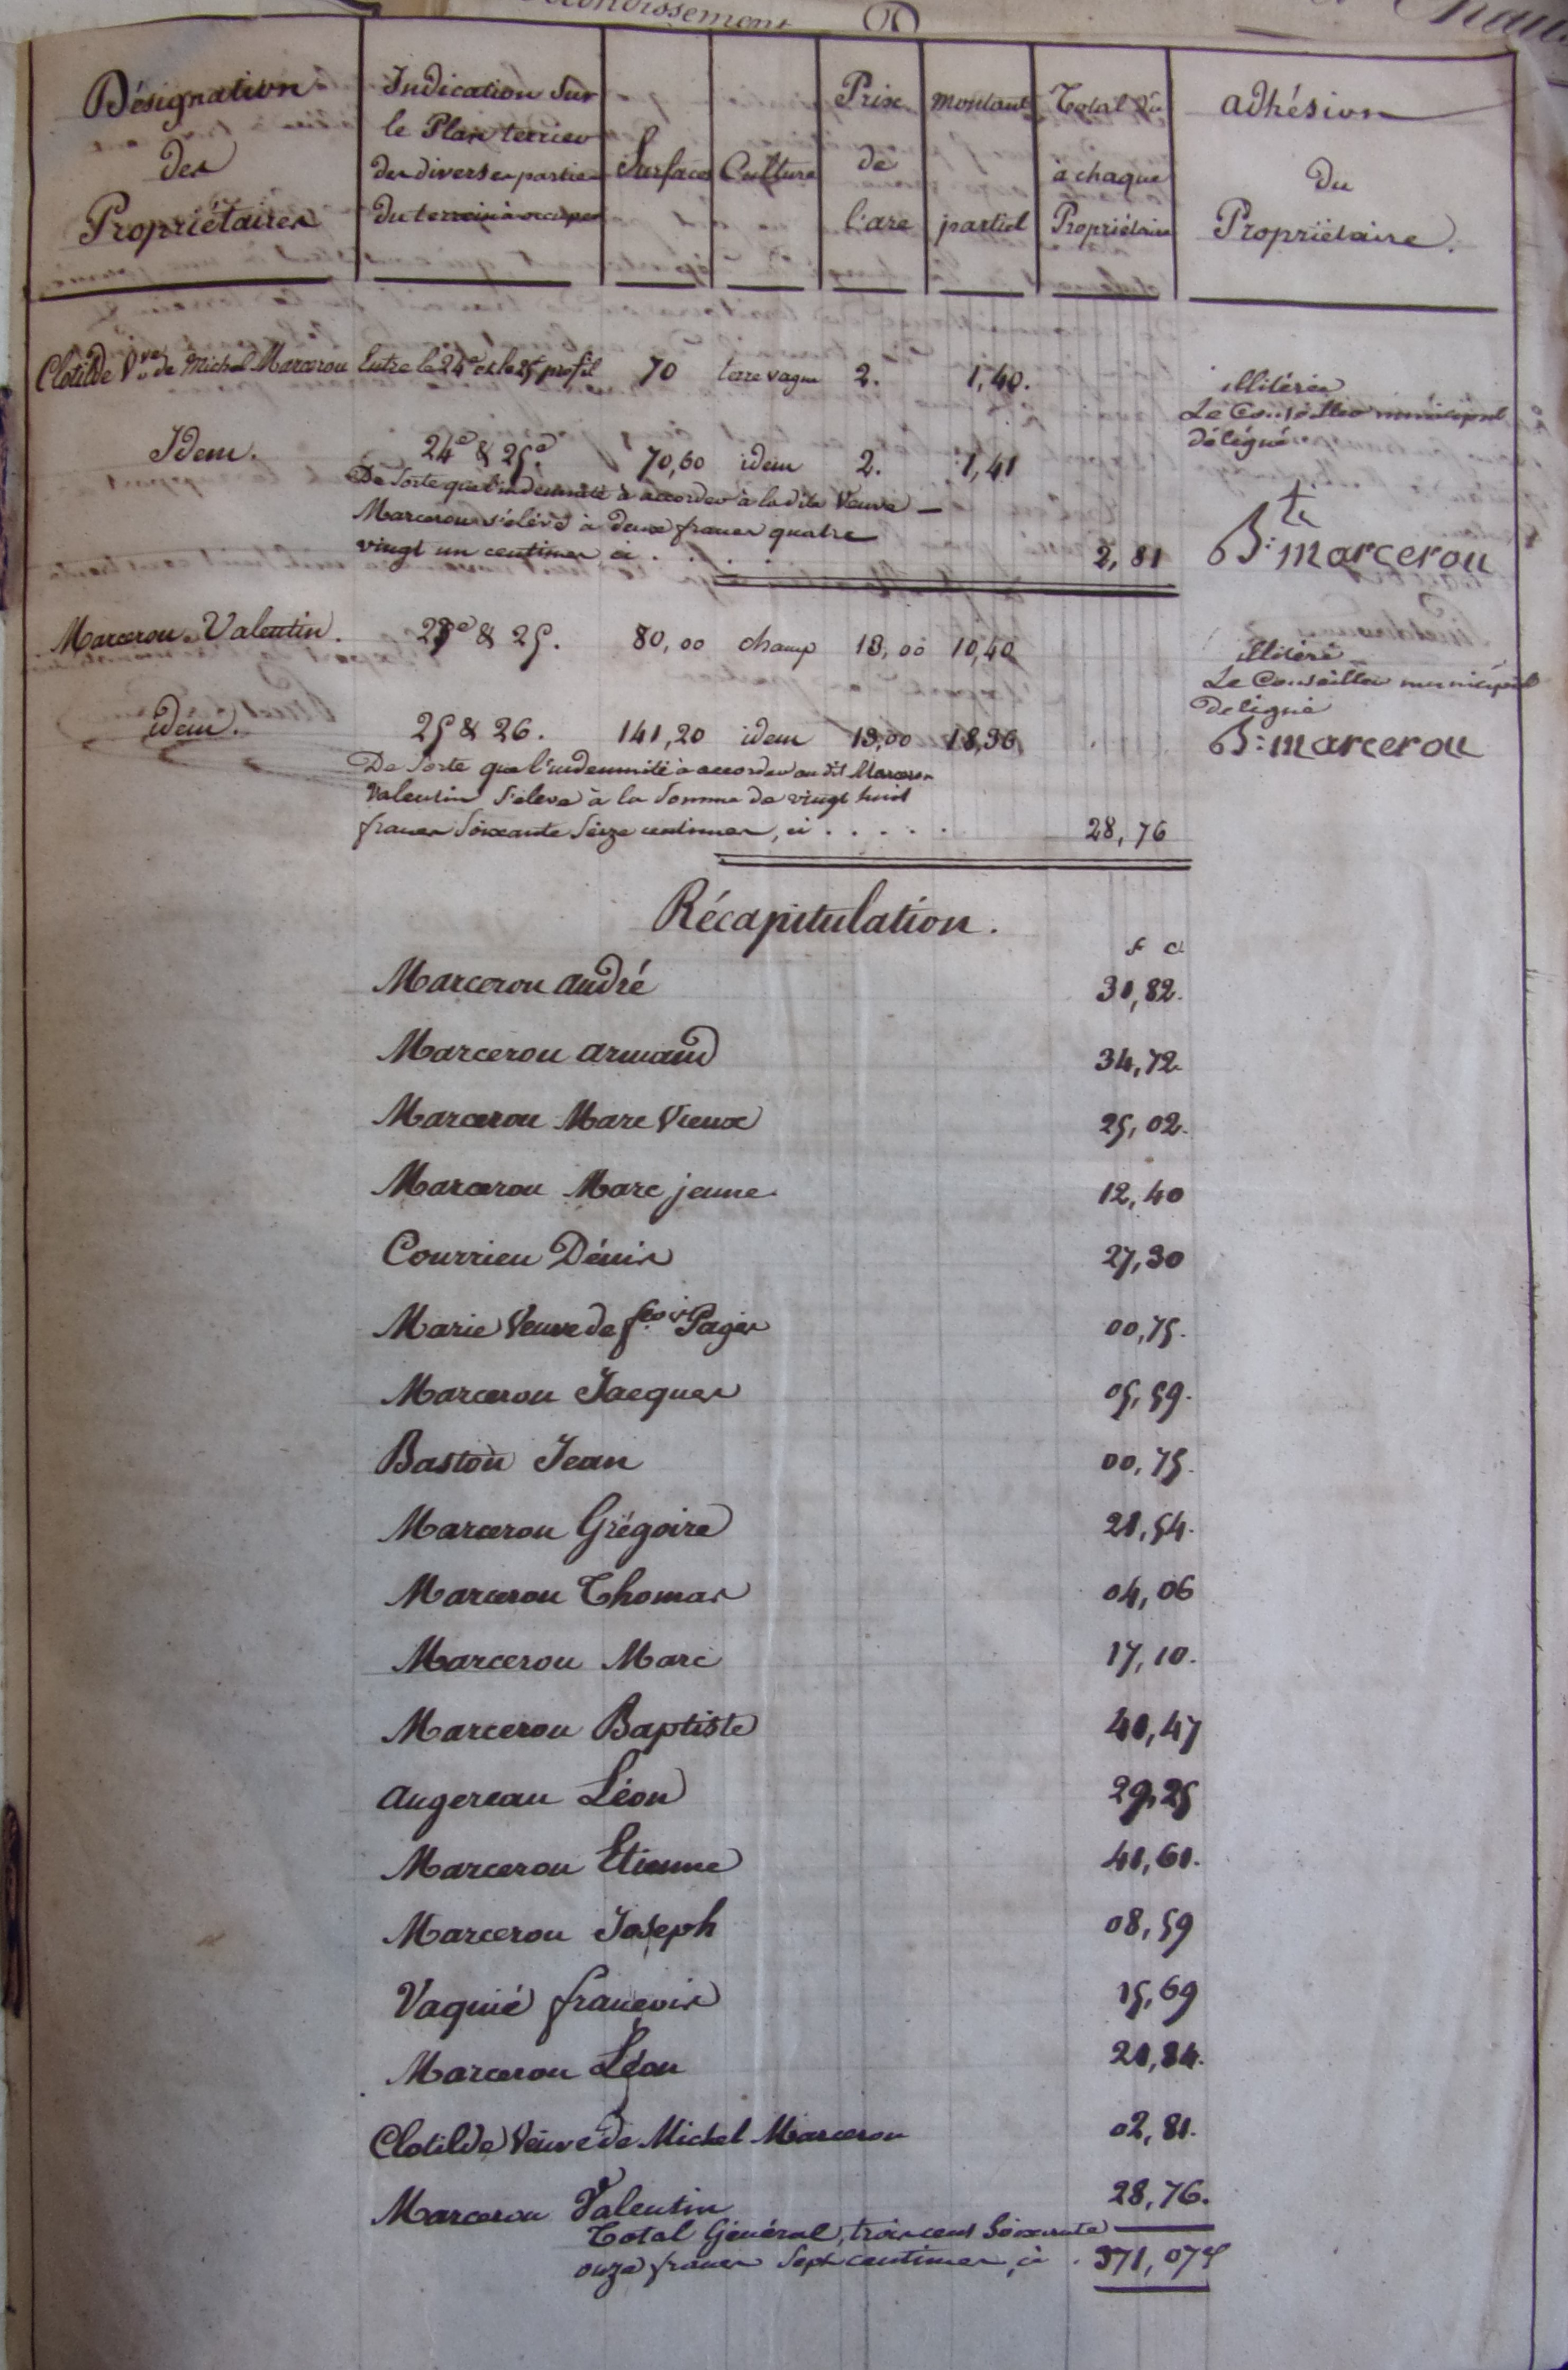 Désignation des Propriétaires
Indication sur le Plan terrier des diverses parties du terrein à occuper
Surfaces
Culture
Prix de l'are
montant partiel
Total dû à chaque Propriétaire
adhésion du Propriétaire.
Clotilde Vve de Michel Marcerou Entre le 24e et le 25e profil 70 terre vague 2. 1,40.
illitérée
Le Conseiller municipal
délégué
Idem. 24e & 25e. 70,60 idem 2. 1,41
De sorte que l'indemnité à accorder à la dite Veuve
Marcerou s'élève à deux francs quatre
vingt un centimes ci . . . . 2,81
Bte marcerou
Marcerou Valentin. 25e & 25. 80,00 champ 13,00 10,40
illitéré
Le Conseiller municipal
deligué
idem. 25 & 26. 141,20 idem 13,00 18,36
B: marcerou
De sorte que l'indemnité à accorder au dit Marcerou
Valentin s'elève à la somme de vingt huit
francs soixante seize centimes, ci . . . . . 28,76
Récapitulation.
f c
Marcerou andré 30,82.
Marcerou armand 34,72.
Marcerou Marc Vieux 25,02.
Marcerou Marc jeune 12,40
Courrieu Dénis 27,30
Marie Veuve de fcois Pagès 00,75.
Marcerou Jacques 05,59.
Bastou Jean 00,75.
Marcerou Grégoire 21,54.
Marcerou Thomas 04,06
Marcerou Marc 17,10.
Marcerou Baptiste 40,47
augereau Léon 29,25
Marcerou Etienne 41,61.
Marcerou Joseph 08,59
Vaquié françois 15,69
Marcerou Léon 21,84.
Clotilde Veuve de Michel Marcerou 02,81.
Marcerou Valentin 28,76.
Total Général, trois cent soixante
onze francs sept centimes, ci . 371,07c